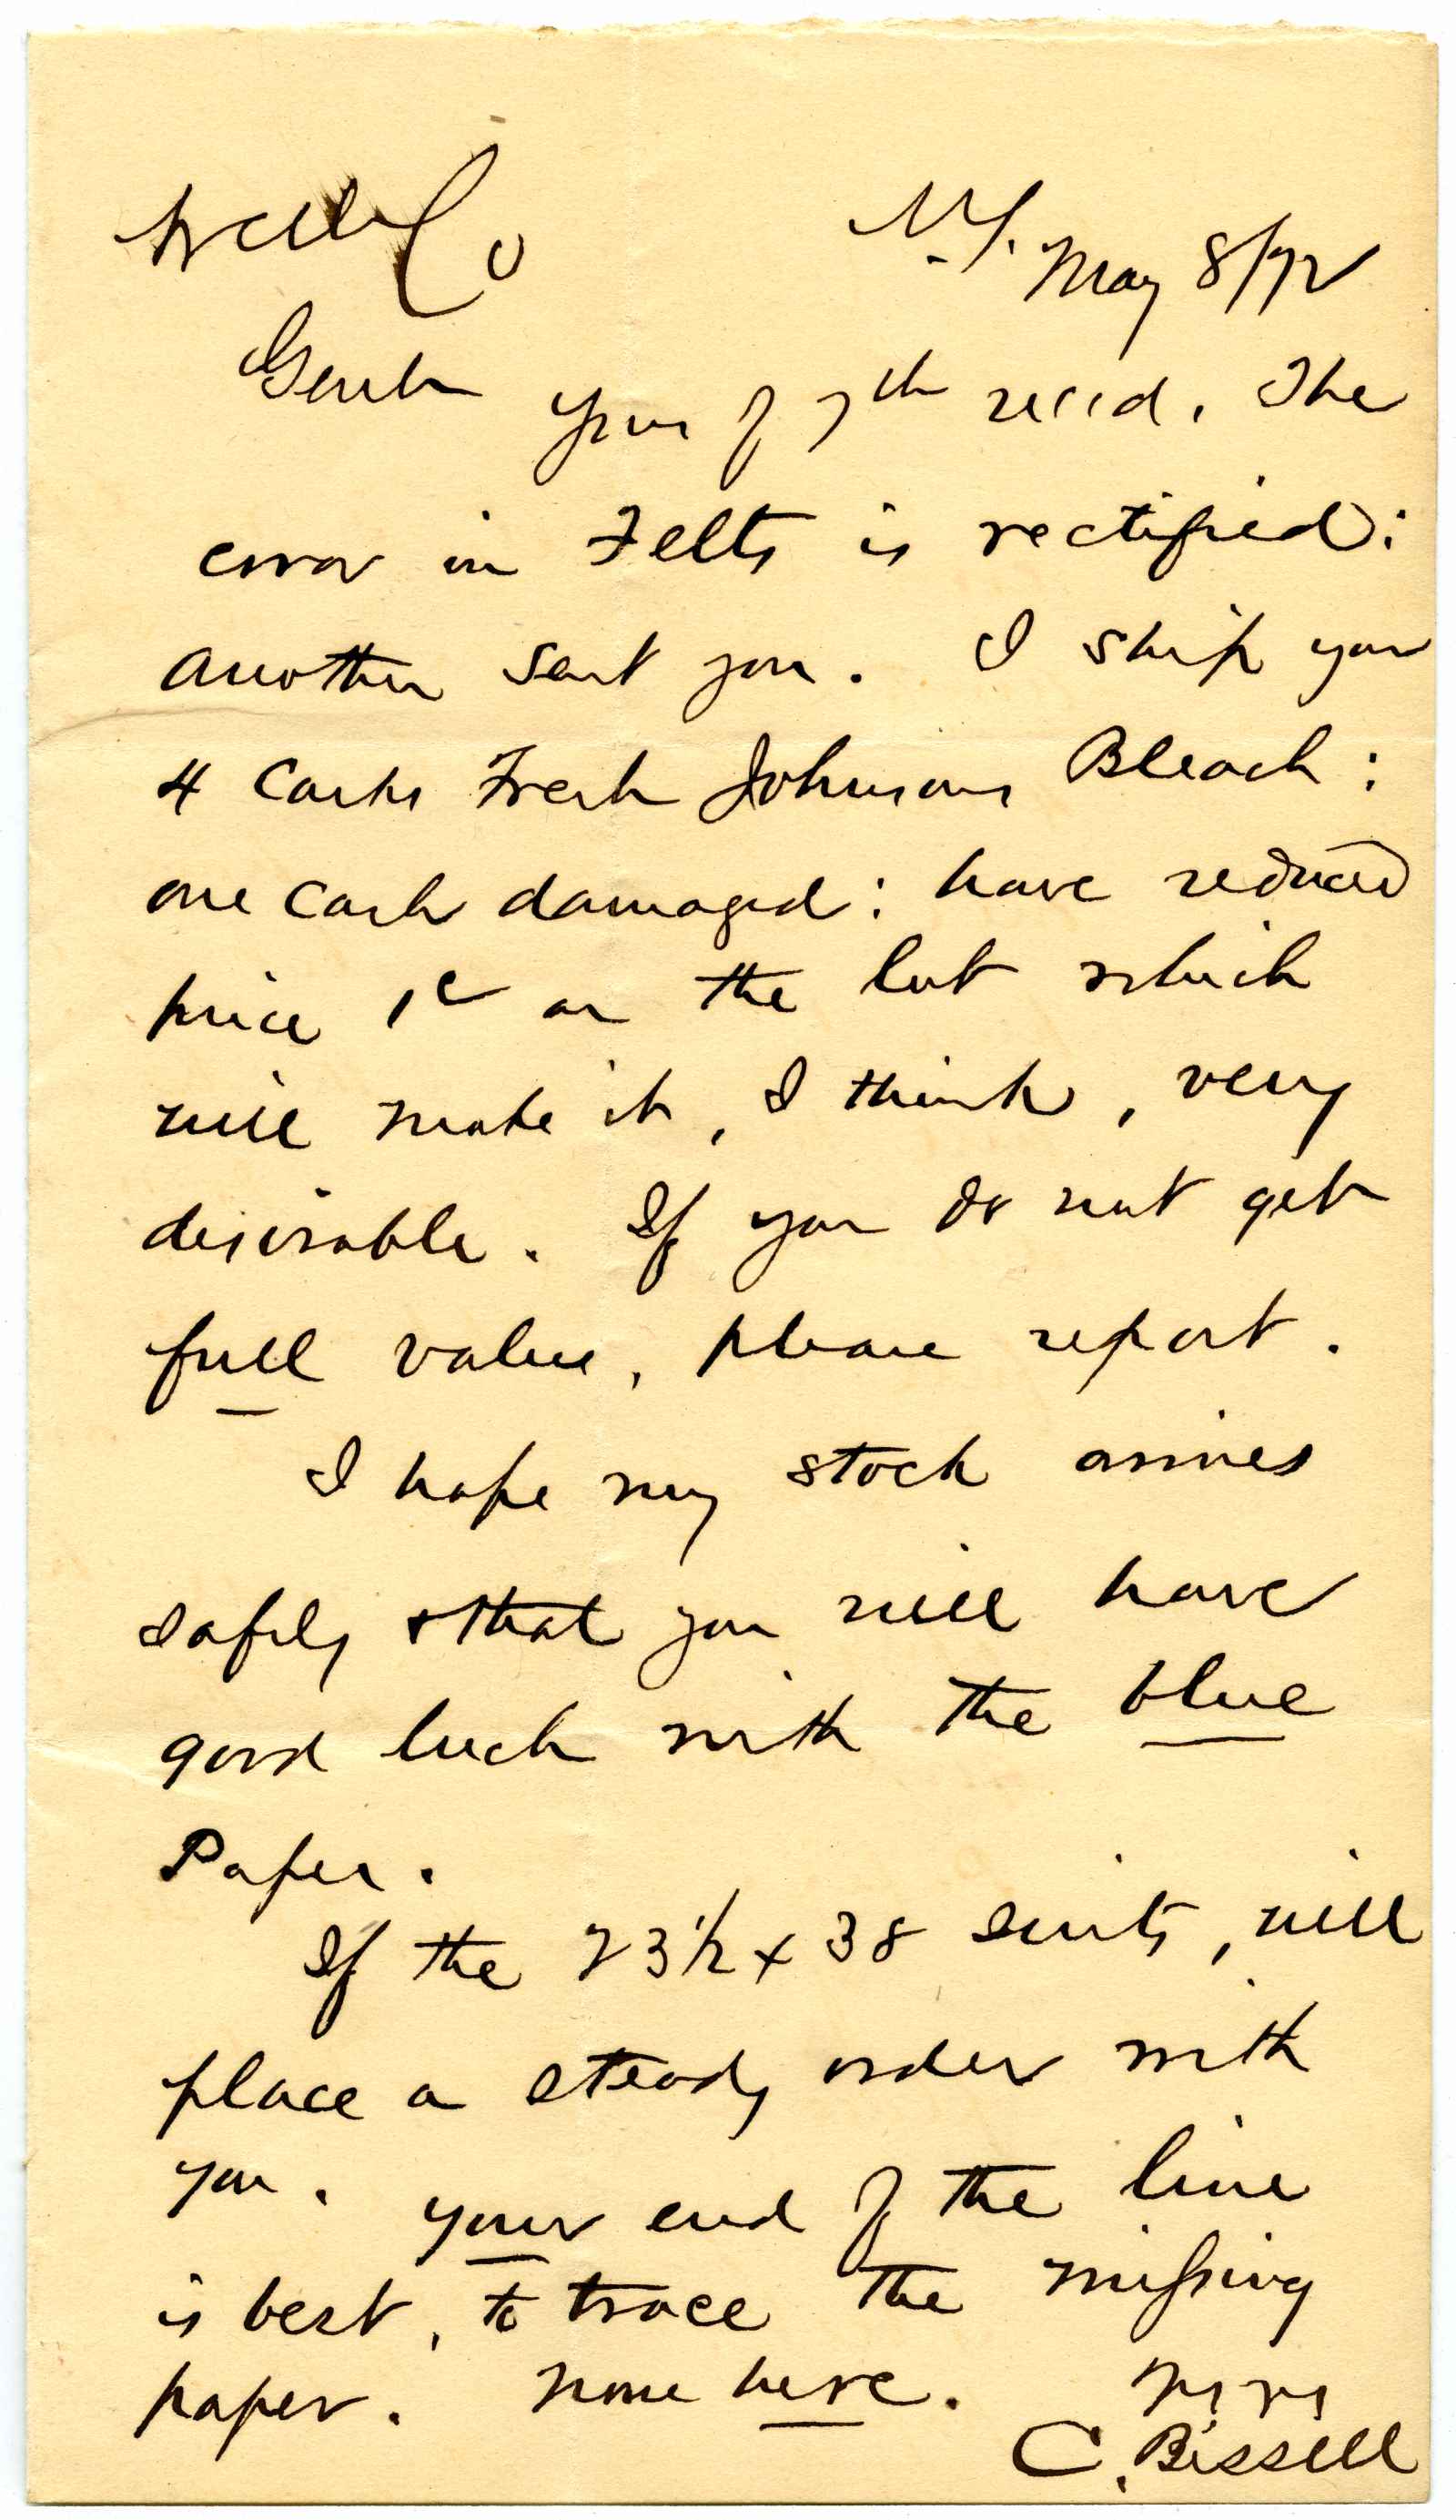 N.Y. May 8/72
Gents Yours of 7th recd. The
error in Felts is rectified:
another sent you. I ship you
4 Casks Fresh Johnsons Bleach:
one Cask damaged: have reduced
price 1c on the lot which
will make it, I think, very
desirable. If you do not get
full value, please report.
I hope my stock arrives
safely & that you will have
good luck with the blue
Paper.
If the 23 1/2 x 38 suits, will
place a steady order with
you. Your end of the line
is best, to trace the missing
paper. None here.
C. Bissell